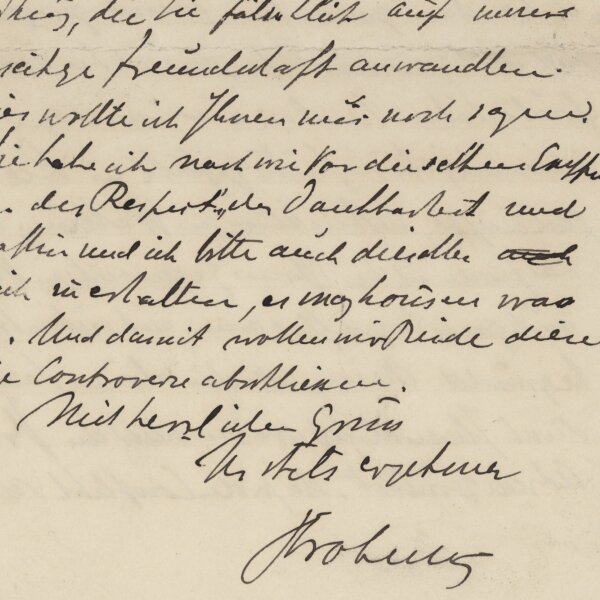 die Sie fälschlich auf unsere
seitige Freundschaft anwandten.
wollte ich Ihnen nur noch sagen.
habe ich nach wie vor dieselben
des Respekts, der Dankbarkeit und
und ich bitte auch dieselben auch
zu erhalten, es mag kommen was
. Und damit wollen wir Beide diese
Controverse abschliessen.
Mit herzlichem Gruss
Ihr stets ergebener